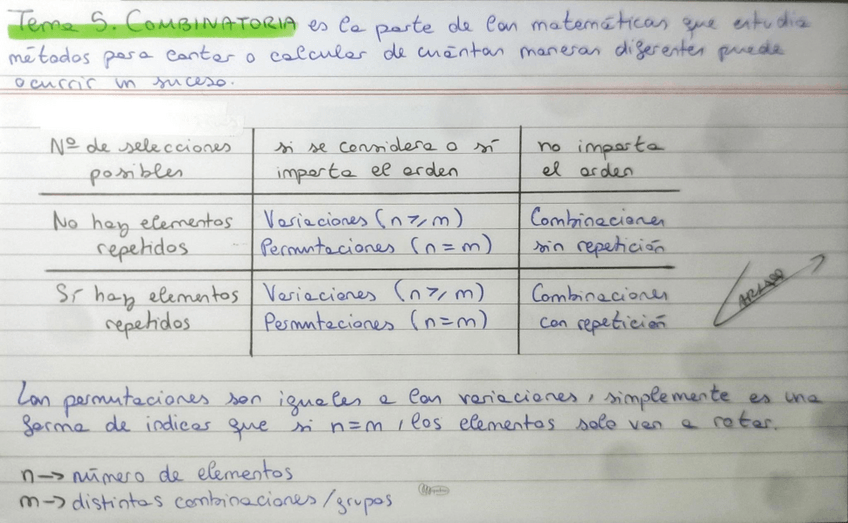 Tema 5. COMBINATORIA es la parte de las matemáticas que estudia
métodos para contar o calcular de cuántas maneras diferentes puede
ocurrir un suceso.
Nº de selecciones posibles
si se considera o sí importa el orden
no importa el orden
No hay elementos repetidos
Variaciones (n ⩾ m)
Permutaciones (n = m)
Combinaciones sin repetición
Sí hay elementos repetidos
Variaciones (n ⩾ m)
Permutaciones (n = m)
Combinaciones con repetición
Las permutaciones son iguales a las variaciones, simplemente es una
forma de indicar que si n = m, los elementos solo van a rotar.
n → número de elementos
m → distintas combinaciones/grupos